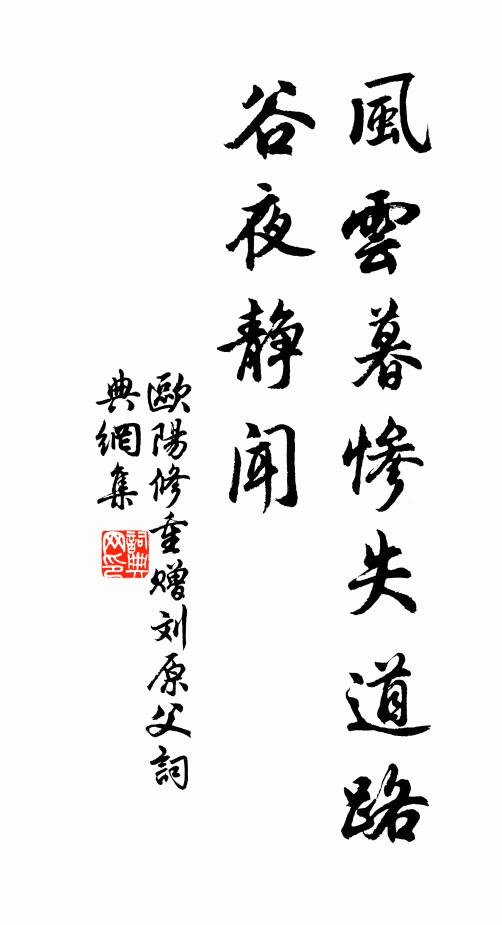 風雲暮慘失道路
谷夜静聞
歐陽修重赠刘原父詞
典網集
詞典
网印